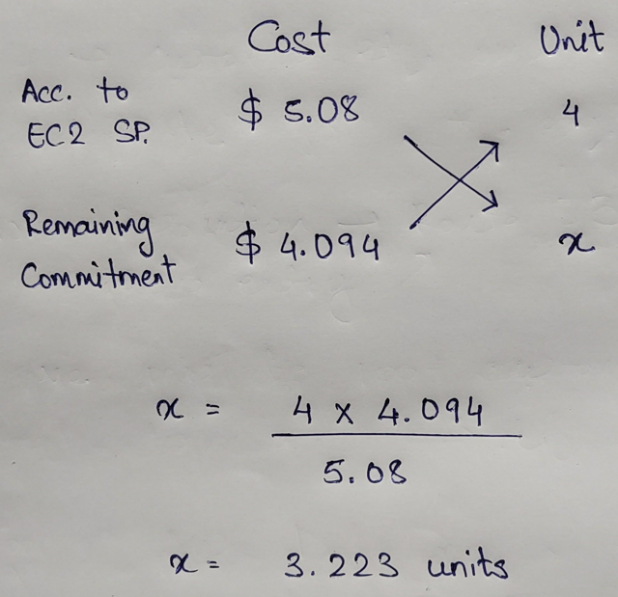 Cost Unit
Acc. to
EC2 SP. $ 5.08 4
Remaining
Commitment $ 4.094 x
x = 4 x 4.094
5.08
x = 3.223 units